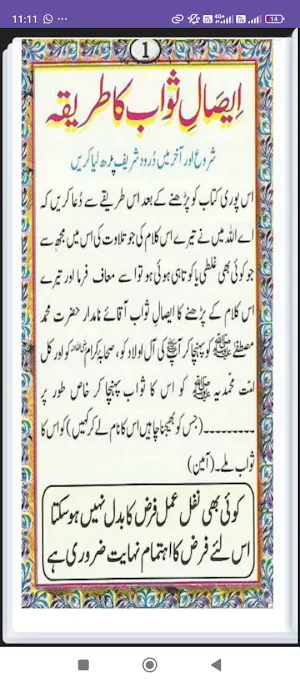 11:11
14
1
ایصالِ ثواب کا طریقہ
شروع اور آخر میں دُرود شریف پڑھ لیا کریں
اس پوری کتاب کو پڑھنے کے بعد اس طریقے سے دُعا کریں کہ
اے اللہ میں نے تیرے اس کلام کی جو تلاوت کی اس میں مجھ سے
جو کوئی بھی غلطی یا کوتاہی ہوئی ہو تو اسے معاف فرما اور تیرے
اس کلام کے پڑھنے کا ایصالِ ثواب آقائے نامدار حضرت محمد
مصطفےٰ ﷺ کو پہنچا کر آپؐ کی آل اولاد کو، صحابہ کرام کو اور کل
امّت محمّدیہ ﷺ کو اس کا ثواب پہنچا کر خاص طور پر
---------(جس کو بھیجنا چاہیں اس کا نام لے کر کہیں) کو اس کا
ثواب ملے۔ (آمین)
کوئی بھی نفل عمل فرض کا بدل نہیں ہوسکتا
اس لئے فرض کا اہتمام نہایت ضروری ہے